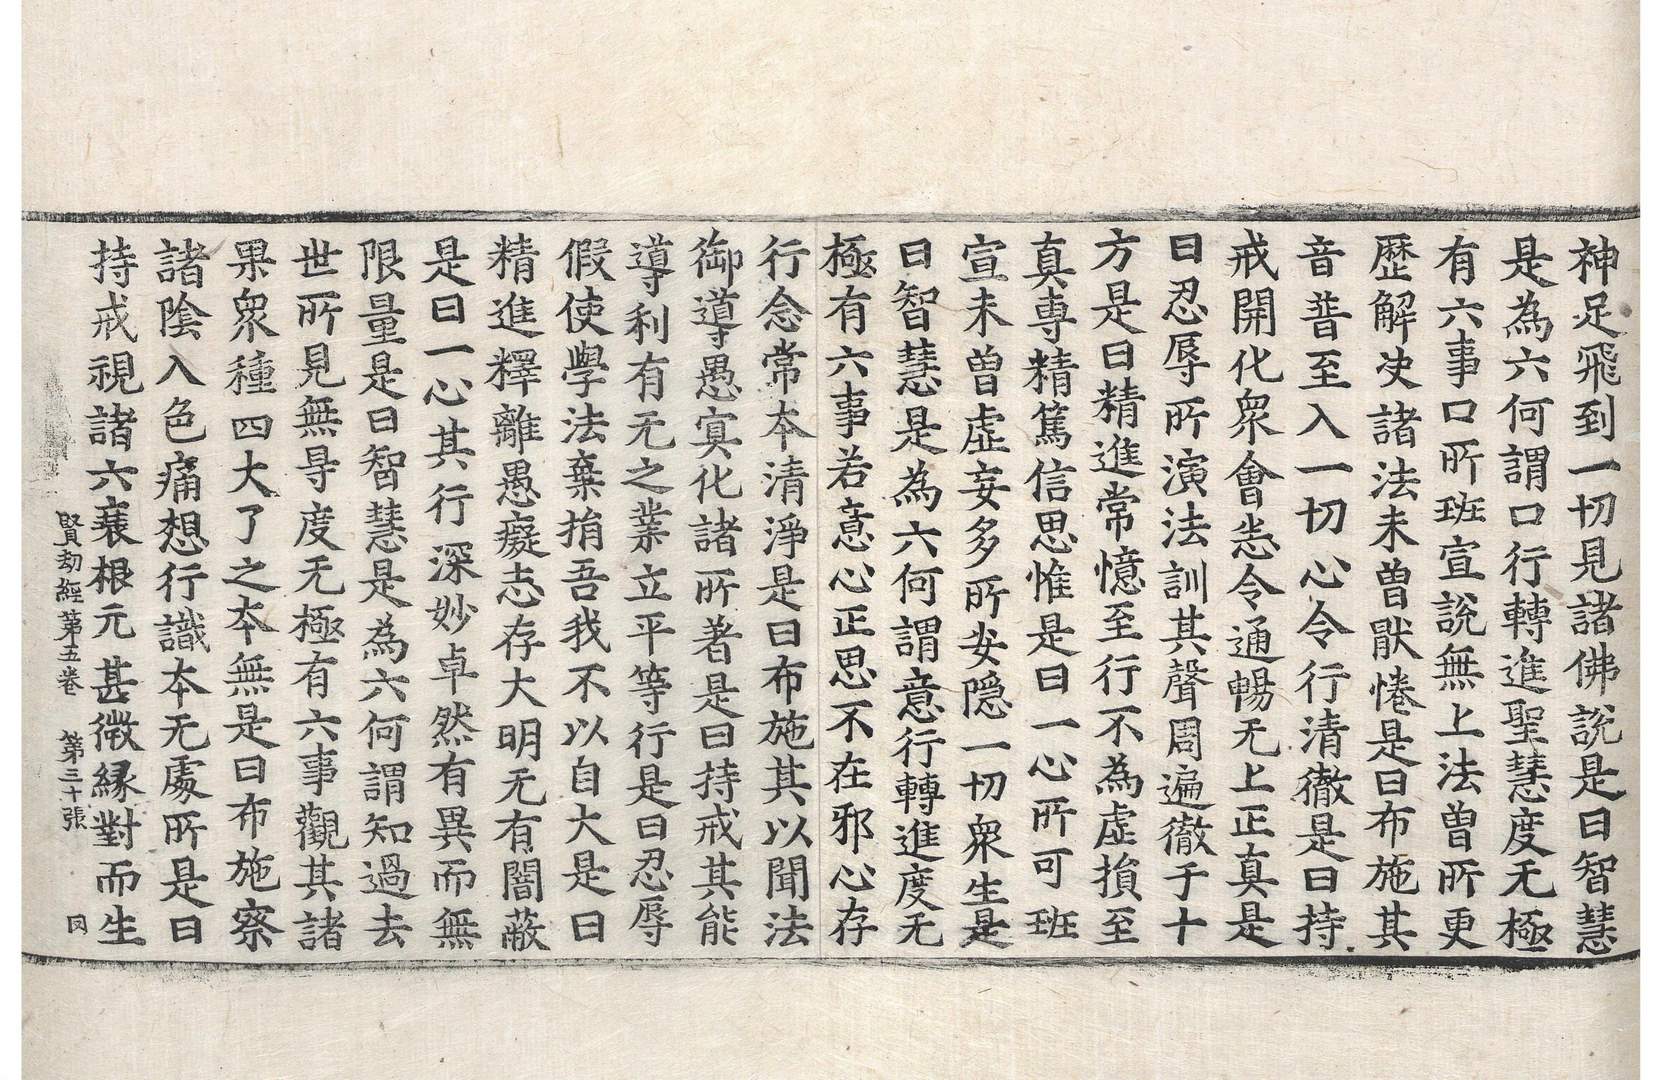 神足飛到一切見諸佛說是曰智慧
是為六何謂口行轉進聖慧度无極
有六事口所班宣說無上法曾所更
歷解决諸法未曽猒惓是曰布施其
音普至入一切心令行清徹是曰持
戒開化衆會悉令通暢无上正真是
曰忍辱所演法訓其聲周遍徹于十
方是曰精進常憶至行不為虛損至
真專精篤信思惟是曰一心所可班
宣未曽虛妄多所安隱一切衆生是
曰智慧是為六何謂意行轉進度无
極有六事若意心正思不在邪心存
行念常本清淨是曰布施其以聞法
御導愚冥化諸所著是曰持戒其能
導利有无之業立平等行是曰忍辱
假使學法棄捐吾我不以自大是曰
精進釋離愚癡志存大明无有闇蔽
是曰一心其行深妙卓然有異而無
限量是曰智慧是為六何謂知過去
世所見無㝵度无極有六事觀其諸
果衆種四大了之本無是曰布施察
諸陰入色痛想行識本无處所是曰
持戒視諸六衰根元甚微緣對而生
賢劫經第五卷 第三十張 同